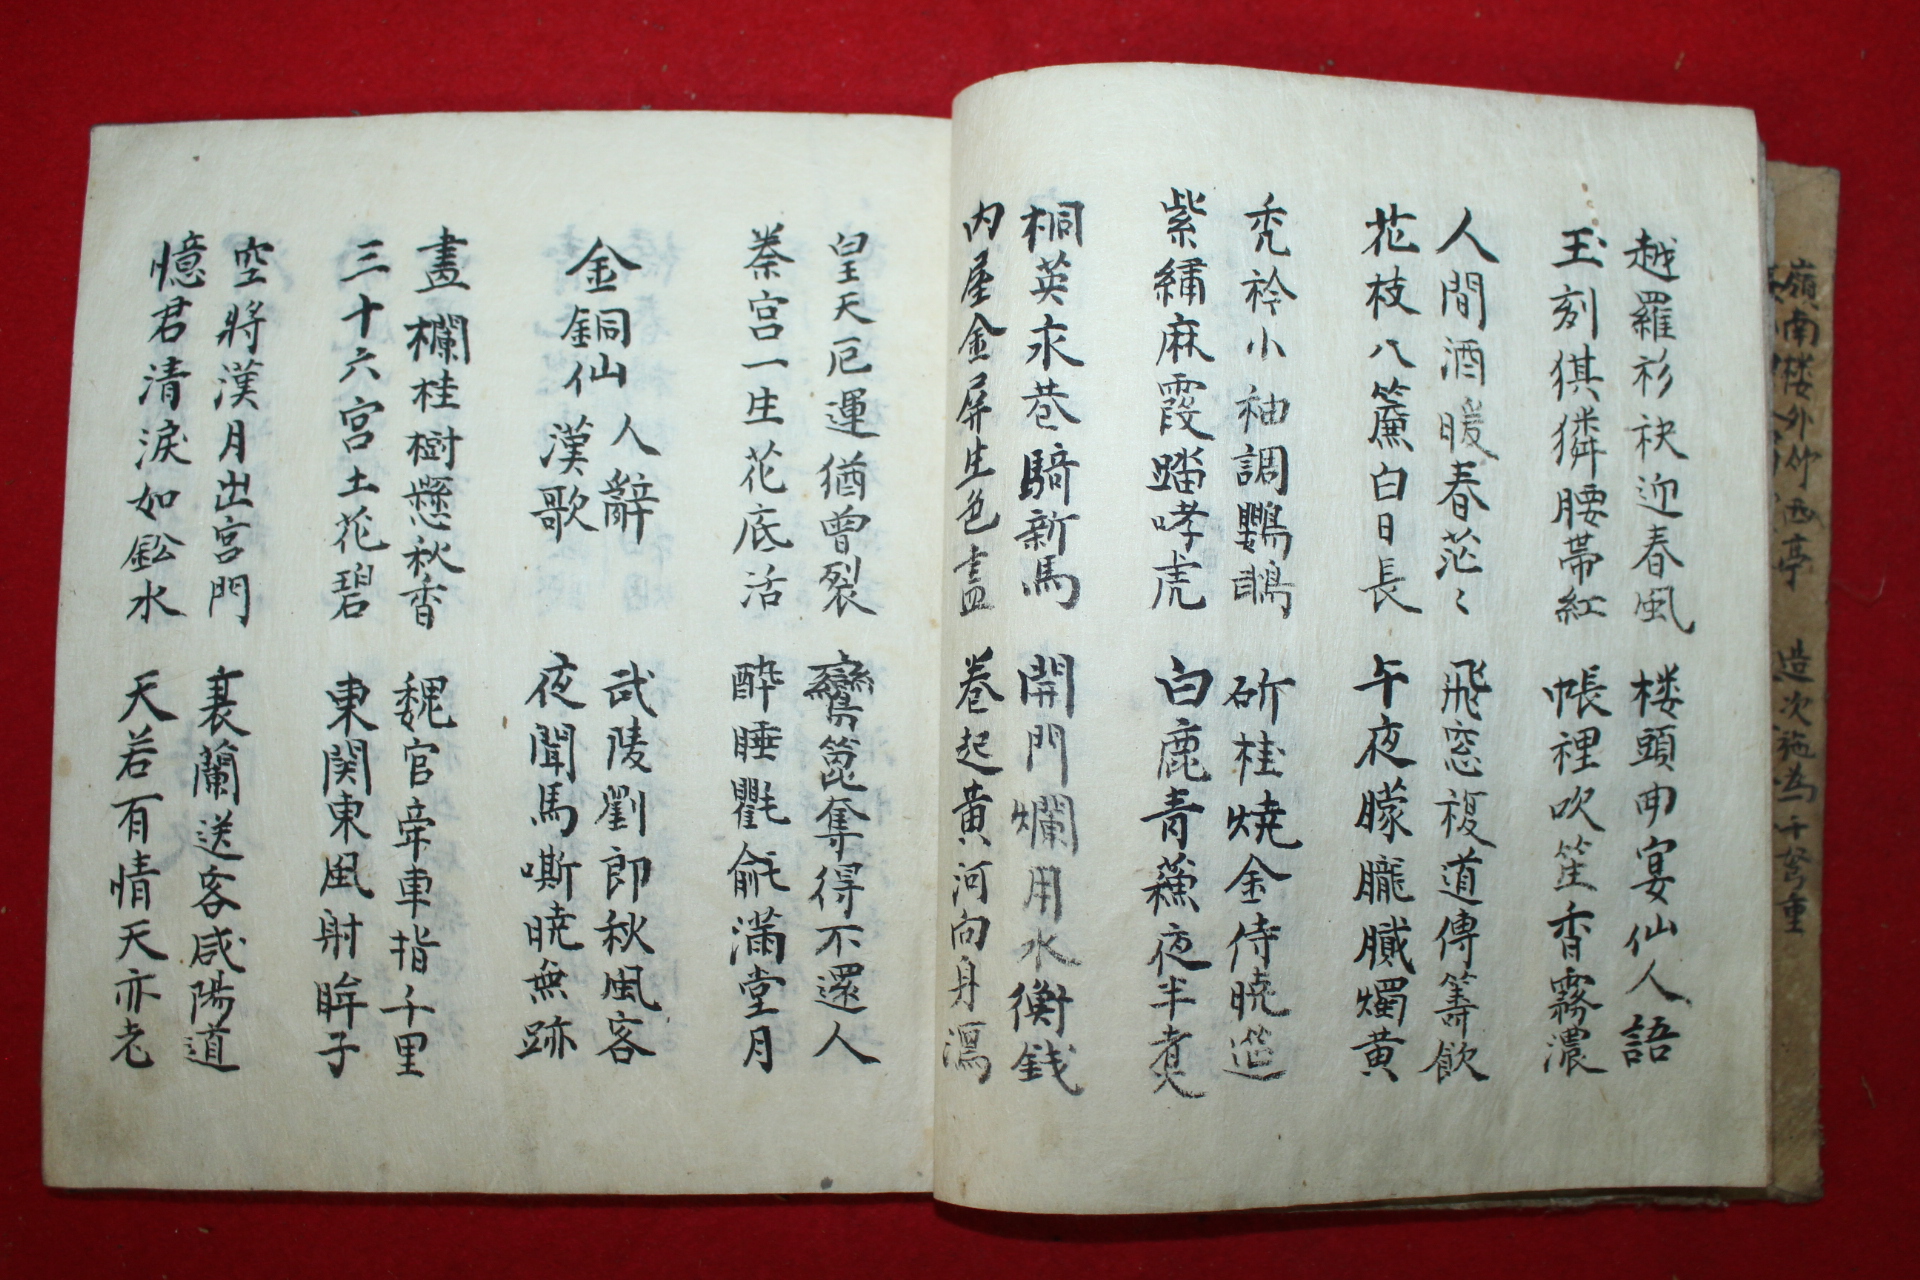 越羅衫袂迎春風 楼頭曲宴仙人語
玉刻猉獜腰帯紅 帳裡吹笙香霧濃
人間酒暖春茫〻 飛窓複道傳籌飲
花枝八簾白日長 午夜朦朧膩燭黄
禿衿小袖調鸚鵡 斫桂燒金侍曉筵
紫繡麻霞踏哮虎 白鹿青蘓夜半煮
桐英永巷騎新馬 開門爛用水衡錢
內屋金屏生色畫 卷起黄河向身瀉
皇天厄運猶曾裂 鸞篦奪得不還人
秦宮一生花底活 酔睡氍毹滿堂月
金銅仙人辭漢歌 武陵劉郎秋風客
夜聞馬嘶曉無跡
畫欄桂樹懸秋香 魏官牽車指千里
三十六宮土花碧 東関東風射眸子
空將漢月出宮門 衰蘭送客咸陽道
憶君清淚如鈆水 天若有情天亦老
嶺南楼外竹西亭 造次施為千弩重